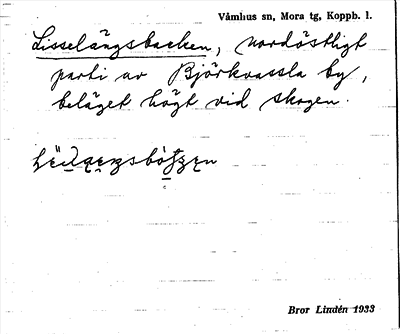 Våmhus sn, Mora tg, Koppb. l.
Lisselängsbacken, nordöstligt
parti av Björkvassla by,
beläget högt vid skogen.
Bror Lindén 1933